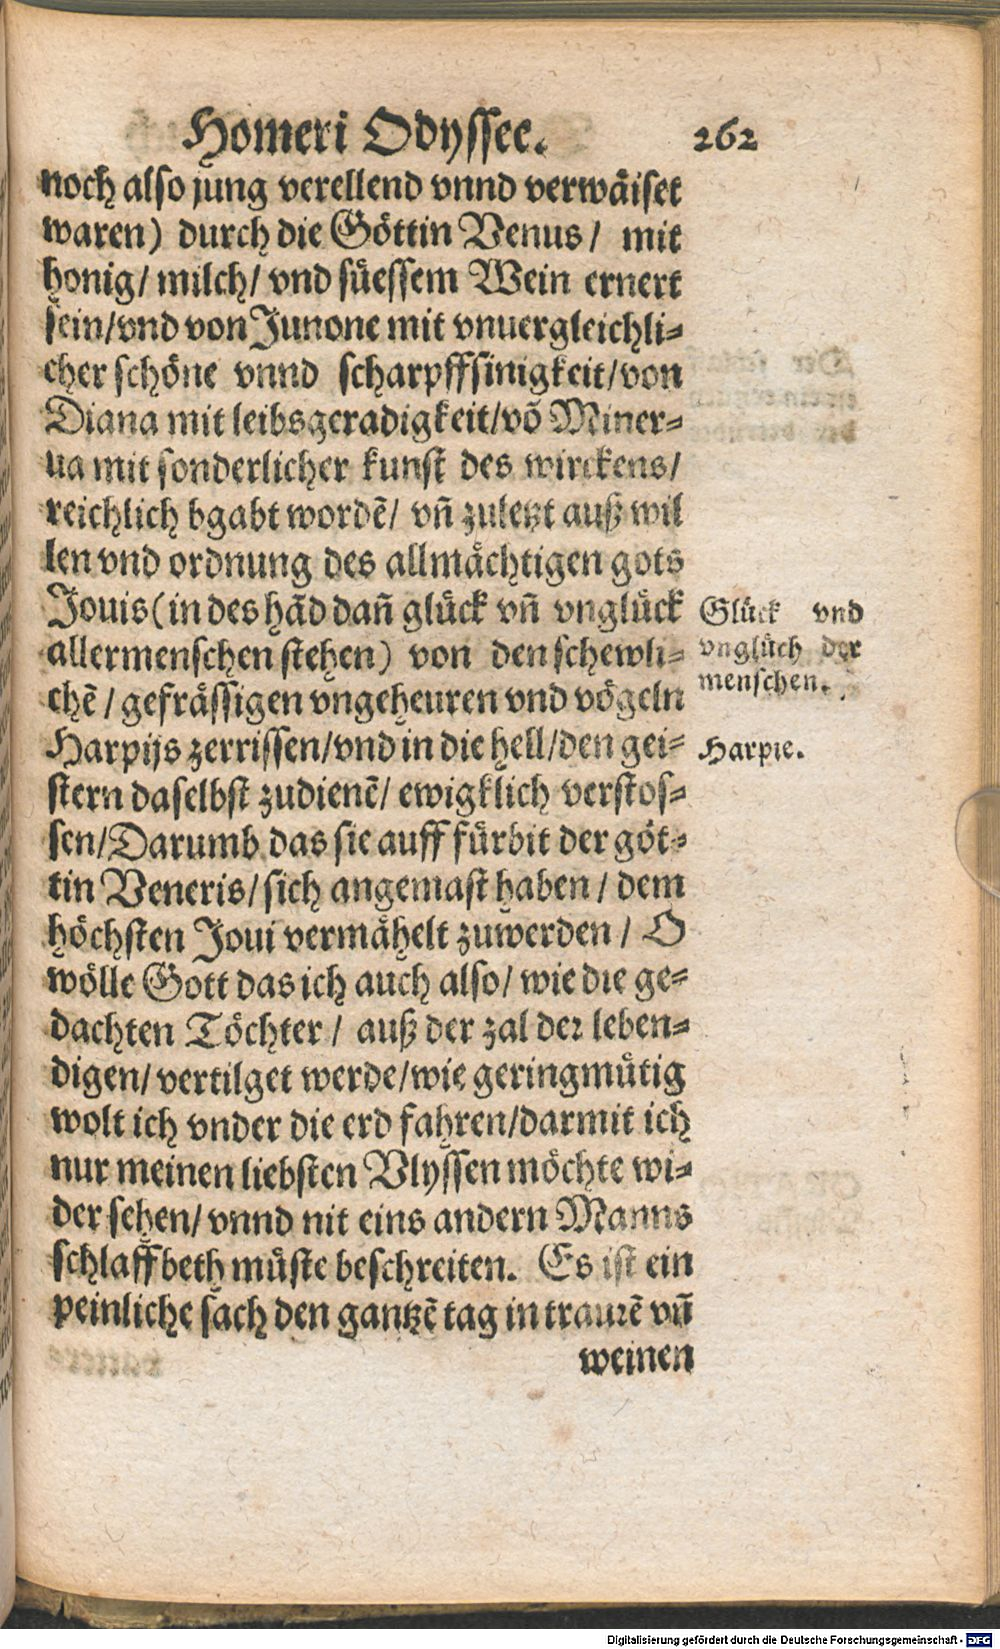 Homeri Odyssee. 262
noch also jung verellend vnnd verwäiset
waren) durch die Göttin Venus / mit
honig / milch / vnd süessem Wein ernert
sein / vnd von Junone mit vnuergleichli-
cher schöne vnnd scharpffsinigkeit / von
Diana mit leibsgeradigkeit / võ Miner-
ua mit sonderlicher kunst des wirckens /
reichlich bgabt wordẽ / vñ zuletzt auß wil
len vnd ordnung des allmächtigen gots
Jouis (in des hãd dañ glück vñ vnglück
allermenschen stehen) von den schewli-
chẽ / gefrässigen vngeheuren vnd vögeln
Harpijs zerrissen / vnd in die hell / den gei-
stern daselbst zudienẽ / ewigklich verstos-
sen / Darumb das sie auff fürbit der göt-
tin Veneris / sich angemast haben / dem
höchsten Joui vermähelt zuwerden / O
wölle Gott das ich auch also / wie die ge-
dachten Töchter / auß der zal der leben-
digen / vertilget werde / wie geringmütig
wolt ich vnder die erd fahren / darmit ich
nur meinen liebsten Vlyssen möchte wi-
der sehen / vnnd nit eins andern Manns
schlaffbeth müste beschreiten. Es ist ein
peinliche sach den gantzẽ tag in traurẽ vñ
weinen
Glück vnd
vnglüch der
menschen.
Harpie.
Digitalisierung gefördert durch die Deutsche Forschungsgemeinschaft - DFG